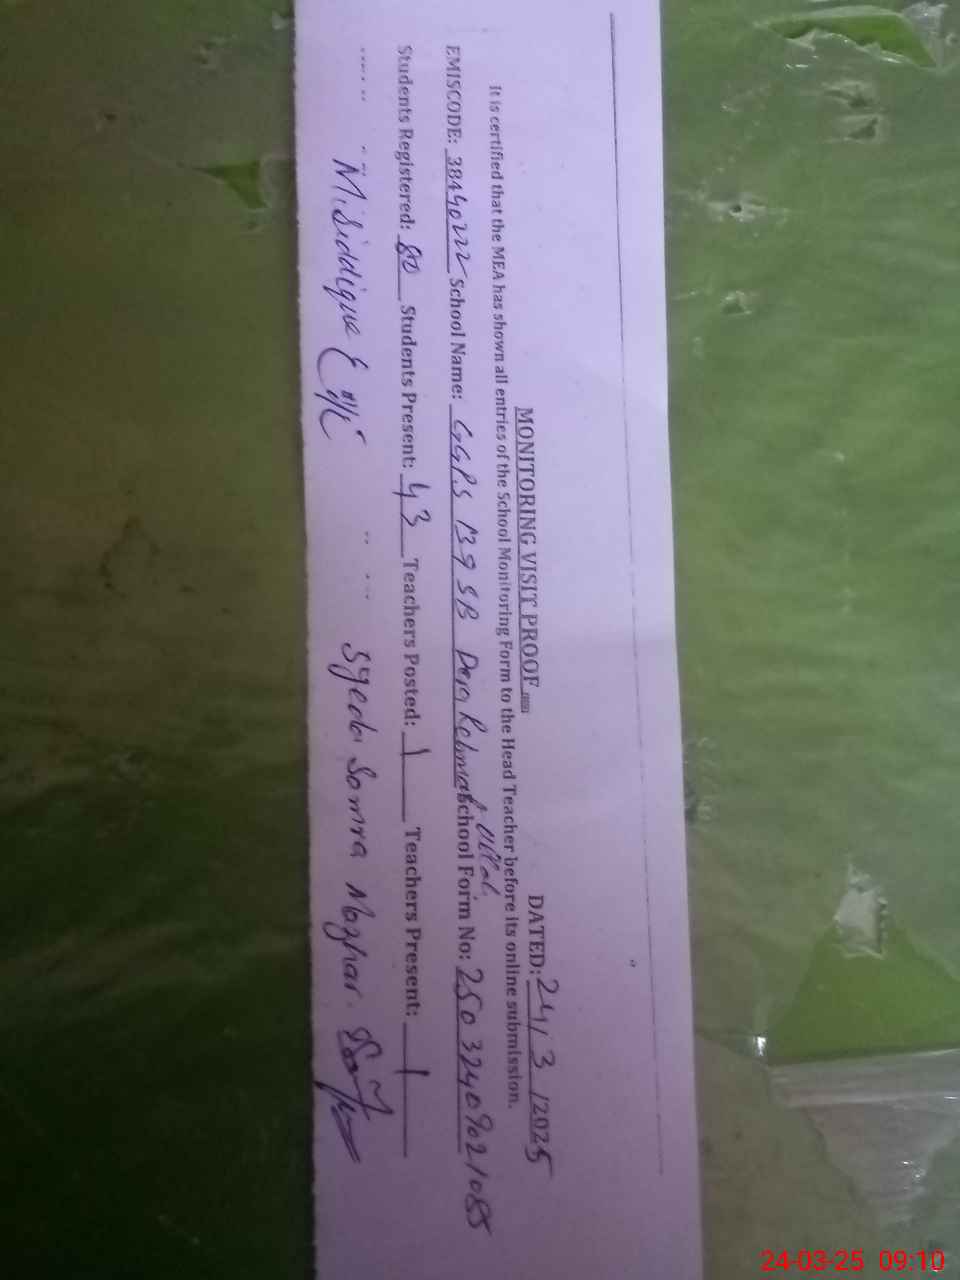 MONITORING VISIT PROOF DATED: 24/3/2025
It is certified that the MEA has shown all entries of the School Monitoring Form to the Head Teacher before its online submission.
EMISCODE: 38440222 School Name: GGPS 139 SB Dera Rehmat School Form No: 25032409021085
Students Registered: 80 Students Present: 43 Teachers Posted: 1 Teachers Present: 1
M. Siddique Syeda Somra Mazhar.
24-03-25 09:10